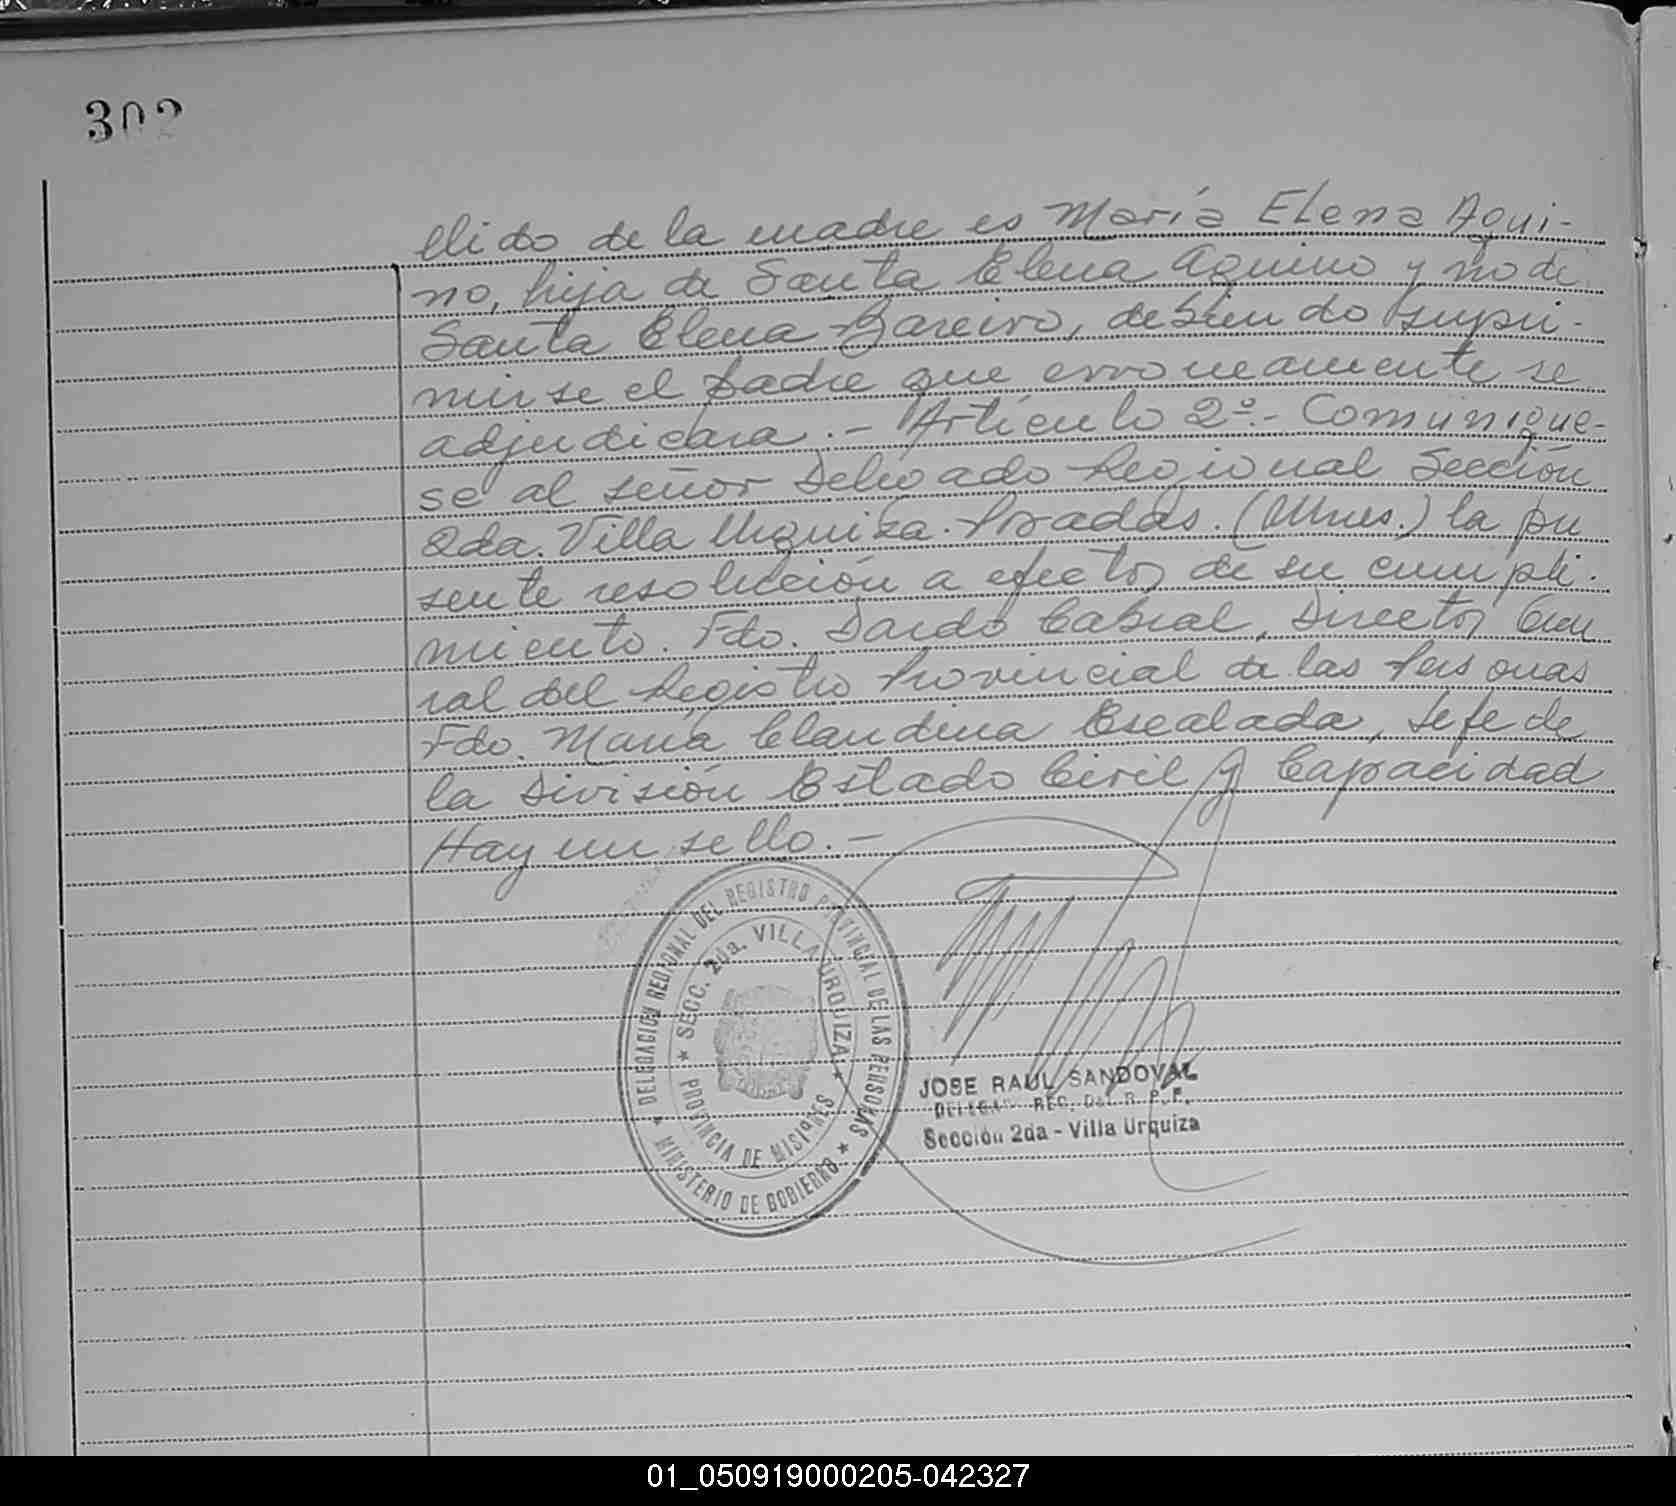 302
llido de la madre es María Elena Aqui-
no, hija de Santa Elena Aquino y no de
Santa Elena Bareiro, debiendo supri-
mirse el padre que erroneamente se
adjudicara.- Artículo 2º- Comunique-
se al señor Delegado Regional Sección
2da. Villa Urquiza. Posadas. (Mnes.) la pre
sente resolución a efectos de su cumpli-
miento. Fdo. Dardo Cabral, Director Gene
ral del Registro Provincial de las Personas
Fdo. María Claudina Escalada, Jefe de
la División Estado Civil y Capacidad
Hay un sello.-
DELEGACION REGIONAL DEL REGISTRO PROVINCIAL DE LAS PERSONAS
★ MINISTERIO DE GOBIERNO ★
★ SECC. 2da. VILLA URQUIZA ★
PROVINCIA DE MISIONES
JOSE RAUL SANDOVAL
REG. Del R. P. P.
Sección 2da - Villa Urquiza
01_050919000205-042327